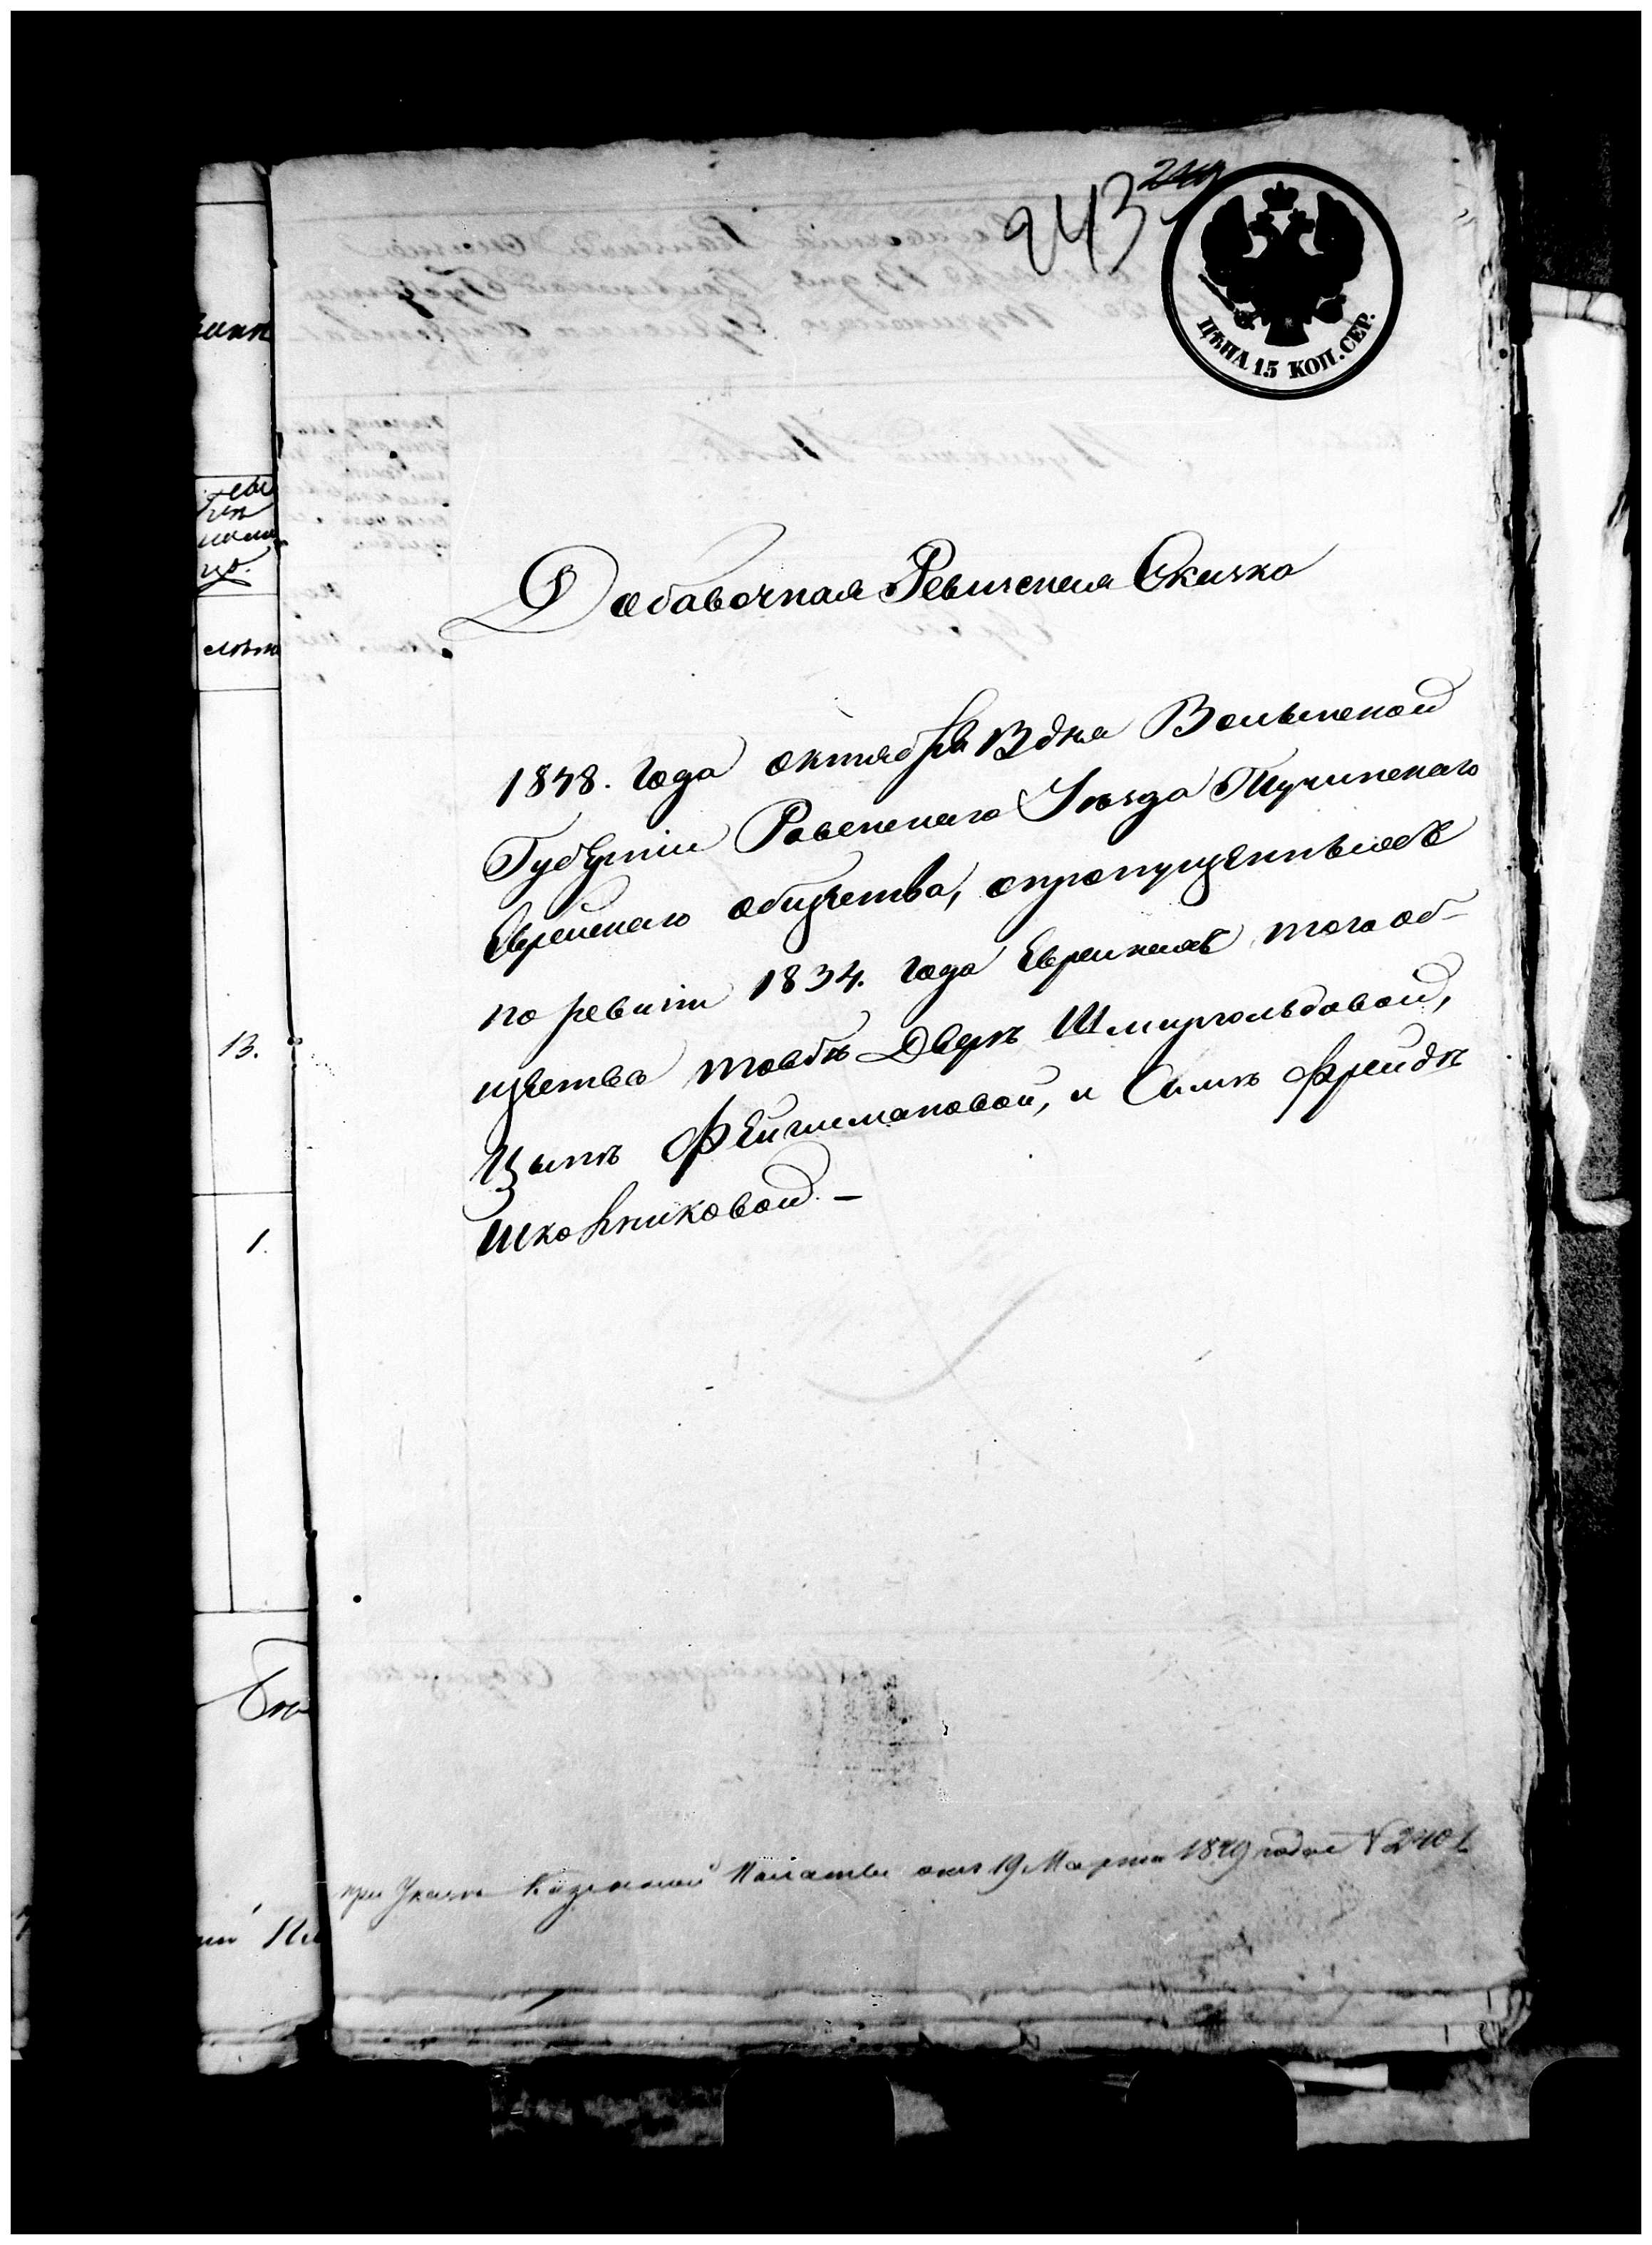 243
ЦѢНА 15 КОП. СЕР.
Добавочная Ревизская Сказка
1848. года октября 13 дня Волынской
Губерніи Ровенскаго Уѣзда Тучинскаго
Еврейскаго общества, опропущенныхъ
по ревизіи 1834. года Еврейкахъ того об-
щества Товбѣ ДвеРѣ Шмиргольдовой,
Ципѣ Фейгимановой, и Симѣ Фрейдѣ
Школьниковой. –
при Указѣ Казенной Палаты отъ 19 Марта 1849 года № 2401
13.
1.